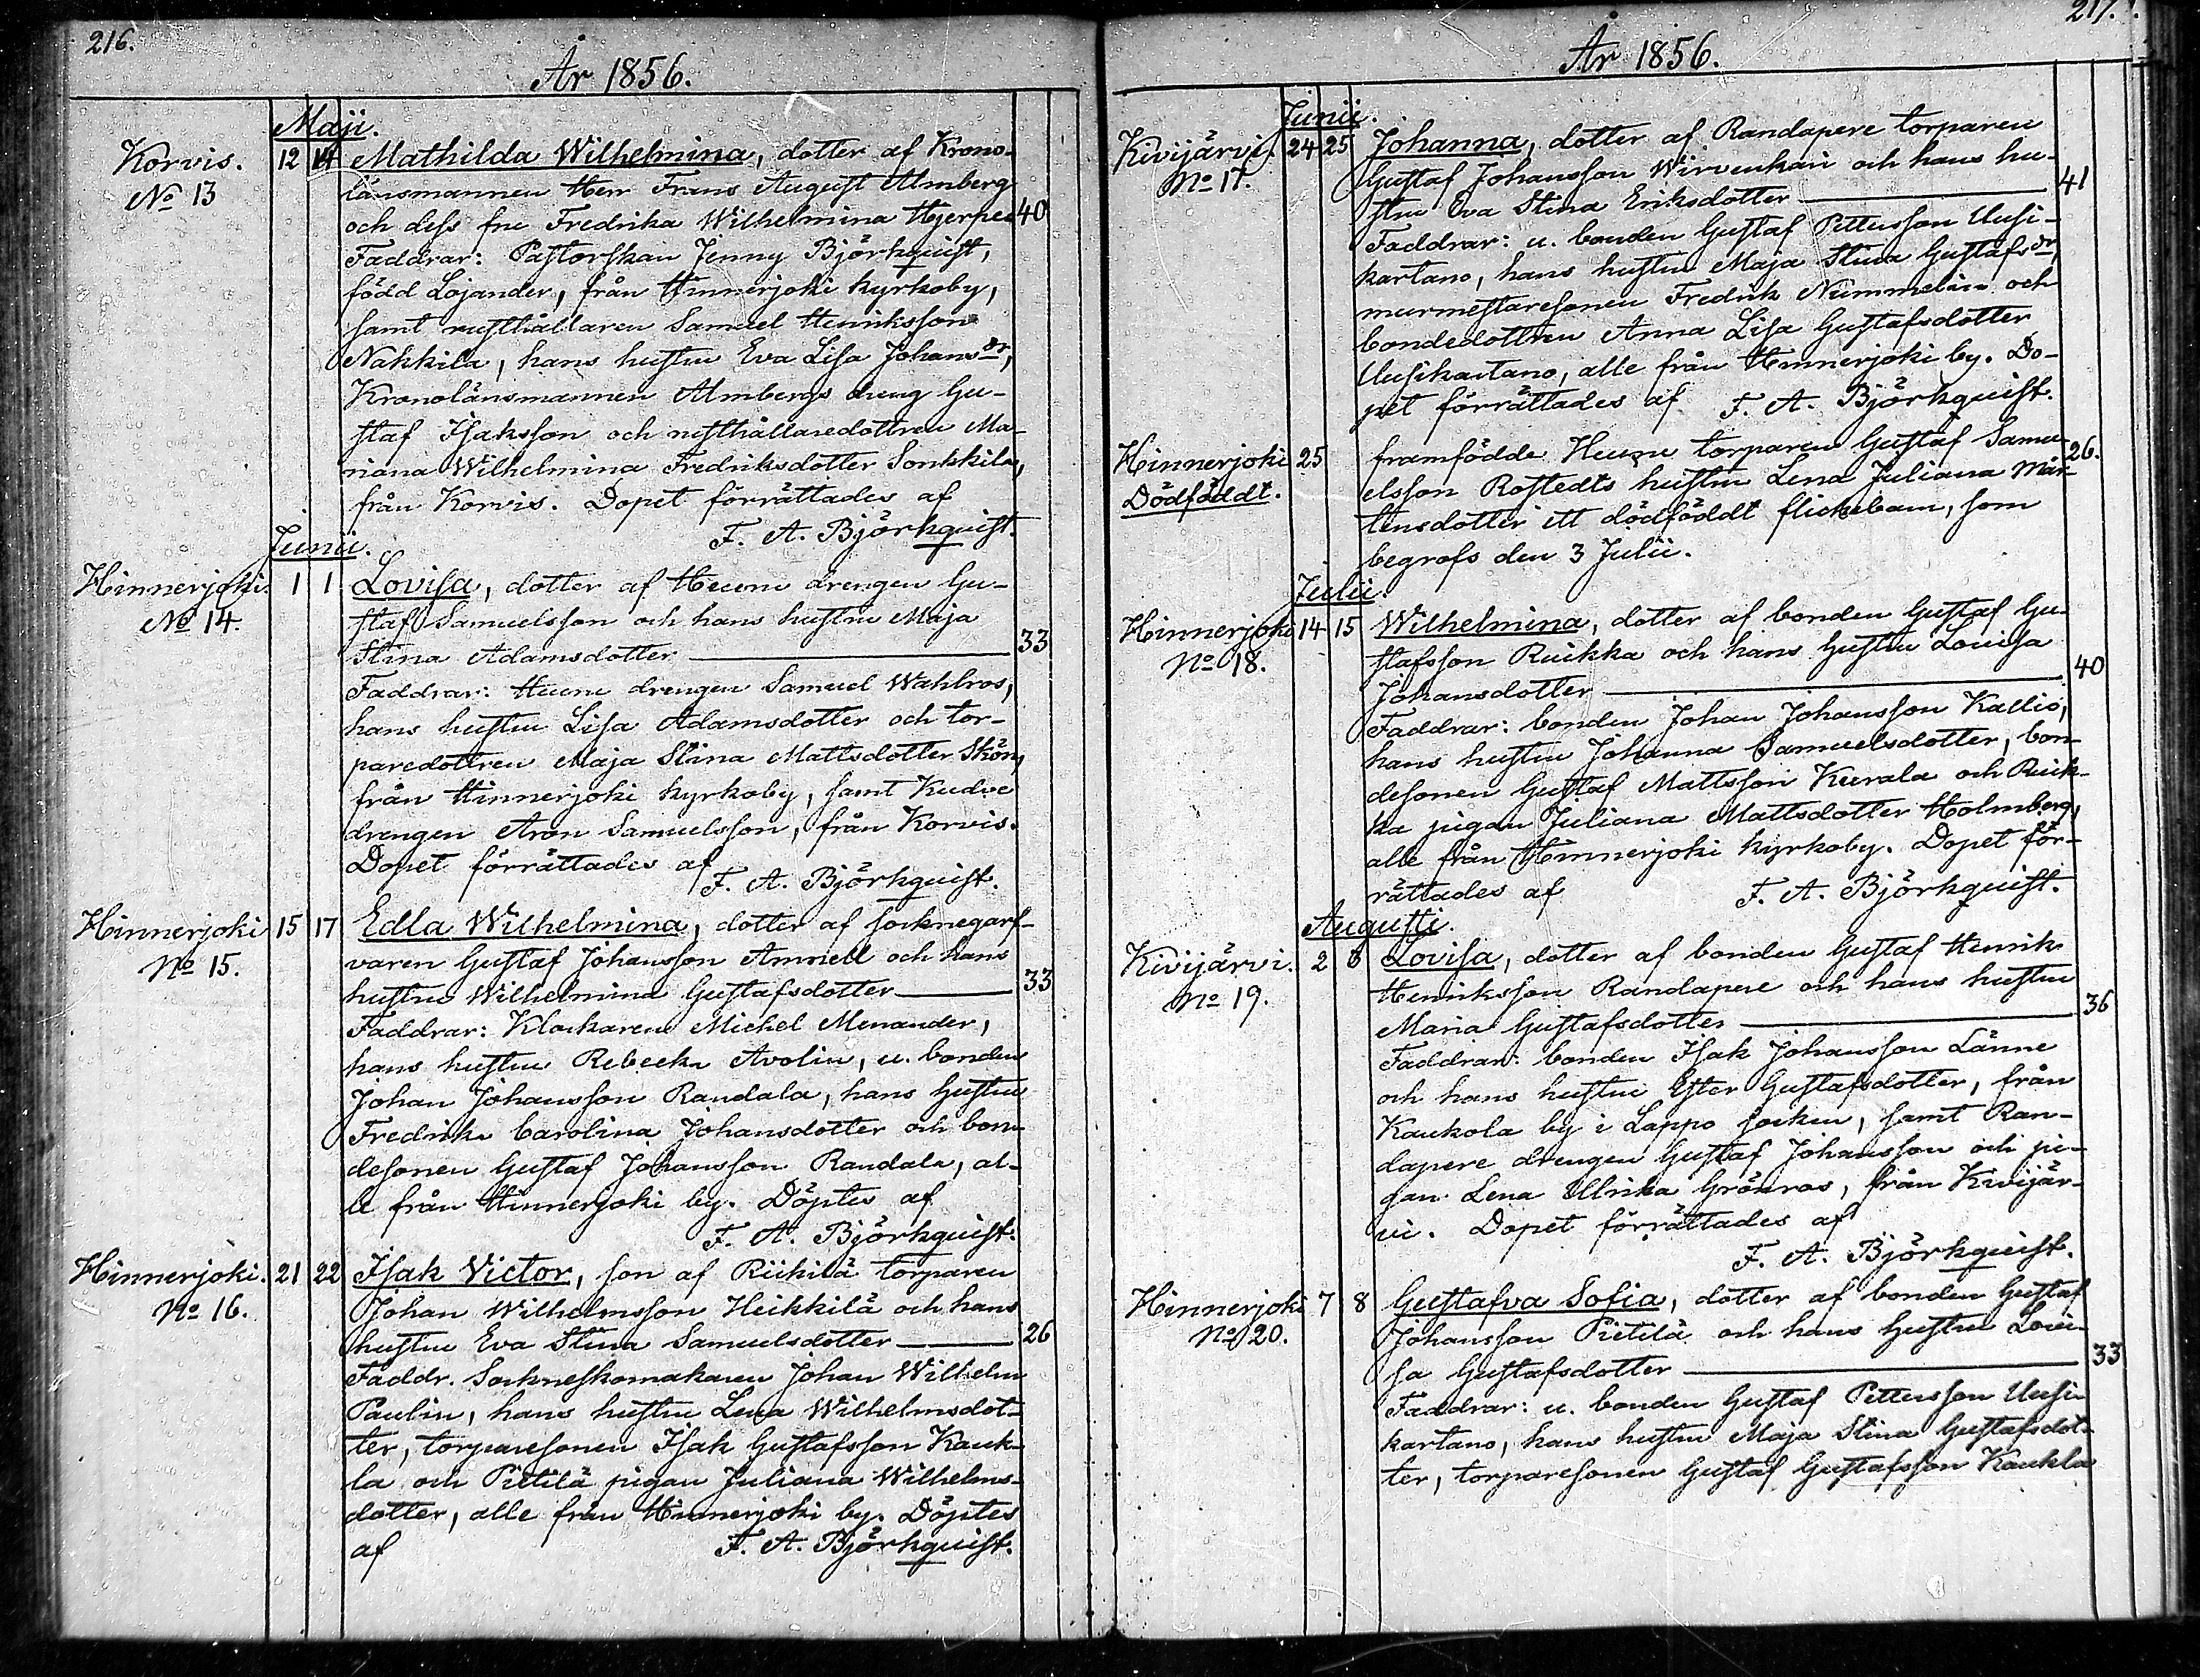 216.
År 1856.
Maji.
Korvis. 12 14 Mathilda Wilhelmina, dotter af Krono-
No 13 länsmannen Herr Frans August Almberg
och dess fru Fredrika Wilhelmina Hjerpe 40
Faddrar: Pastorskan Jenny Björkquist,
född Lojander, från Hinnerjoki kyrkoby,
samt rusthållaren Samuel Henriksson
Nakkila, hans hustru Eva Lisa Johansdr,
Kronolänsmannen Almbergs dreng Gu-
staf Isaksson och rusthållaredottren Ma-
riana Wilhelmina Fredriksdotter Sonkkila,
från Korvis. Dopet förrättades af
F. A. Björkquist.
Junii.
Hinnerjoki. 1 1 Lovisa, dotter af Heurn drengen Gu-
No 14. staf Samuelsson och hans hustru Maja
Stina Adamsdotter 33
Faddrar: Heurn drengen Samuel Wahlros,
hans hustru Lisa Adamsdotter och tor-
paredottren Maja Stina Mattsdotter Skön,
från Hinnerjoki kyrkoby, samt Kudve
drengen Aron Samuelsson, från Korvis.
Dopet förrättades af
F. A. Björkquist.
Hinnerjoki 15 17 Edla Wilhelmina, dotter af socknegarf-
No 15. varen Gustaf Johansson Amnell och hans
hustru Wilhelmina Gustafsdotter 33
Faddrar: Klockaren Michel Menander,
hans hustru Rebecka Avolin, u. bonden
Johan Johansson Randala, hans hustru
Fredrika Carolina Johansdotter och bon-
desonen Gustaf Johansson Randala, al-
le från Hinnerjoki by. Döptes af
F. A. Björkquist.
Hinnerjoki. 21 22 Isak Victor, son af Riikilä torparen
No 16. Johan Wilhelmsson Heikkilä och hans
hustru Eva Stina Samuelsdotter 26
Faddr. Sockneskomakaren Johan Wilhelm
Paulin, hans hustru Lena Wilhelmsdot-
ter, torparesonen Isak Gustafsson Kauk-
la och Pietilä pigan Juliana Wilhelms-
dotter, alle från Hinnerjoki by. Döptes
af F. A. Björkquist.
217.
År 1856.
Junii.
Kivijärvi 24 25 Johanna, dotter af Randapere torparen
No 17. Gustaf Johansson Wirvenkari och hans hu-
stru Eva Stina Eriksdotter 41
Faddrar: u. bonden Gustaf Pettersson Uusi-
kartano, hans hustru Maja Stina Gustafsdr,
murmestaresonen Fredrik Nummelin och
bondedottren Anna Lisa Gustafsdotter
Uusikartano, alle från Hinnerjoki by. Do-
pet förrättades af F. A. Björkquist.
Hinnerjoki 25 framfödde Heurn torparen Gustaf Samu- 26.
Dödföddt. elsson Rostedts hustru Lena Juliana Mår-
tensdotter ett dödföddt flickebarn, som
begrofs den 3 Julii.
Julii.
Hinnerjoki 14 15 Wilhelmina, dotter af bonden Gustaf Gu-
No 18. stafsson Ruikka och hans hustru Lovisa
Johansdotter 40
Faddrar: bonden Johan Johansson Kallio,
hans hustru Johanna Samuelsdotter, bon-
desonen Gustaf Mattsson Kurala och Ruik-
ka pigan Juliana Mattsdotter Holmberg,
alle från Hinnerjoki kyrkoby. Dopet för-
rättades af F. A. Björkquist.
Augusti.
Kivijärvi. 2 3 Lovisa, dotter af bonden Gustaf Henrik
No 19. Henriksson Randapere och hans hustru
Maria Gustafsdotter 36
Faddrar: bonden Isak Johansson Länne
och hans hustru Ester Gustafsdotter, från
Kaukola by i Lappo socken, samt Ran-
dapere drengen Gustaf Johansson och pi-
gan Lena Ulrika Grönros, från Kivijär-
vi. Dopet förrättades af
F. A. Björkquist.
Hinnerjoki 7 8 Gustafva Sofia, dotter af bonden Gustaf
No 20. Johansson Pietilä och hans hustru Lovi-
sa Gustafsdotter 33
Faddrar: u. bonden Gustaf Pettersson Uusi-
kartano, hans hustru Maja Stina Gustafsdot-
ter, torparesonen Gustaf Gustafsson Kaukla